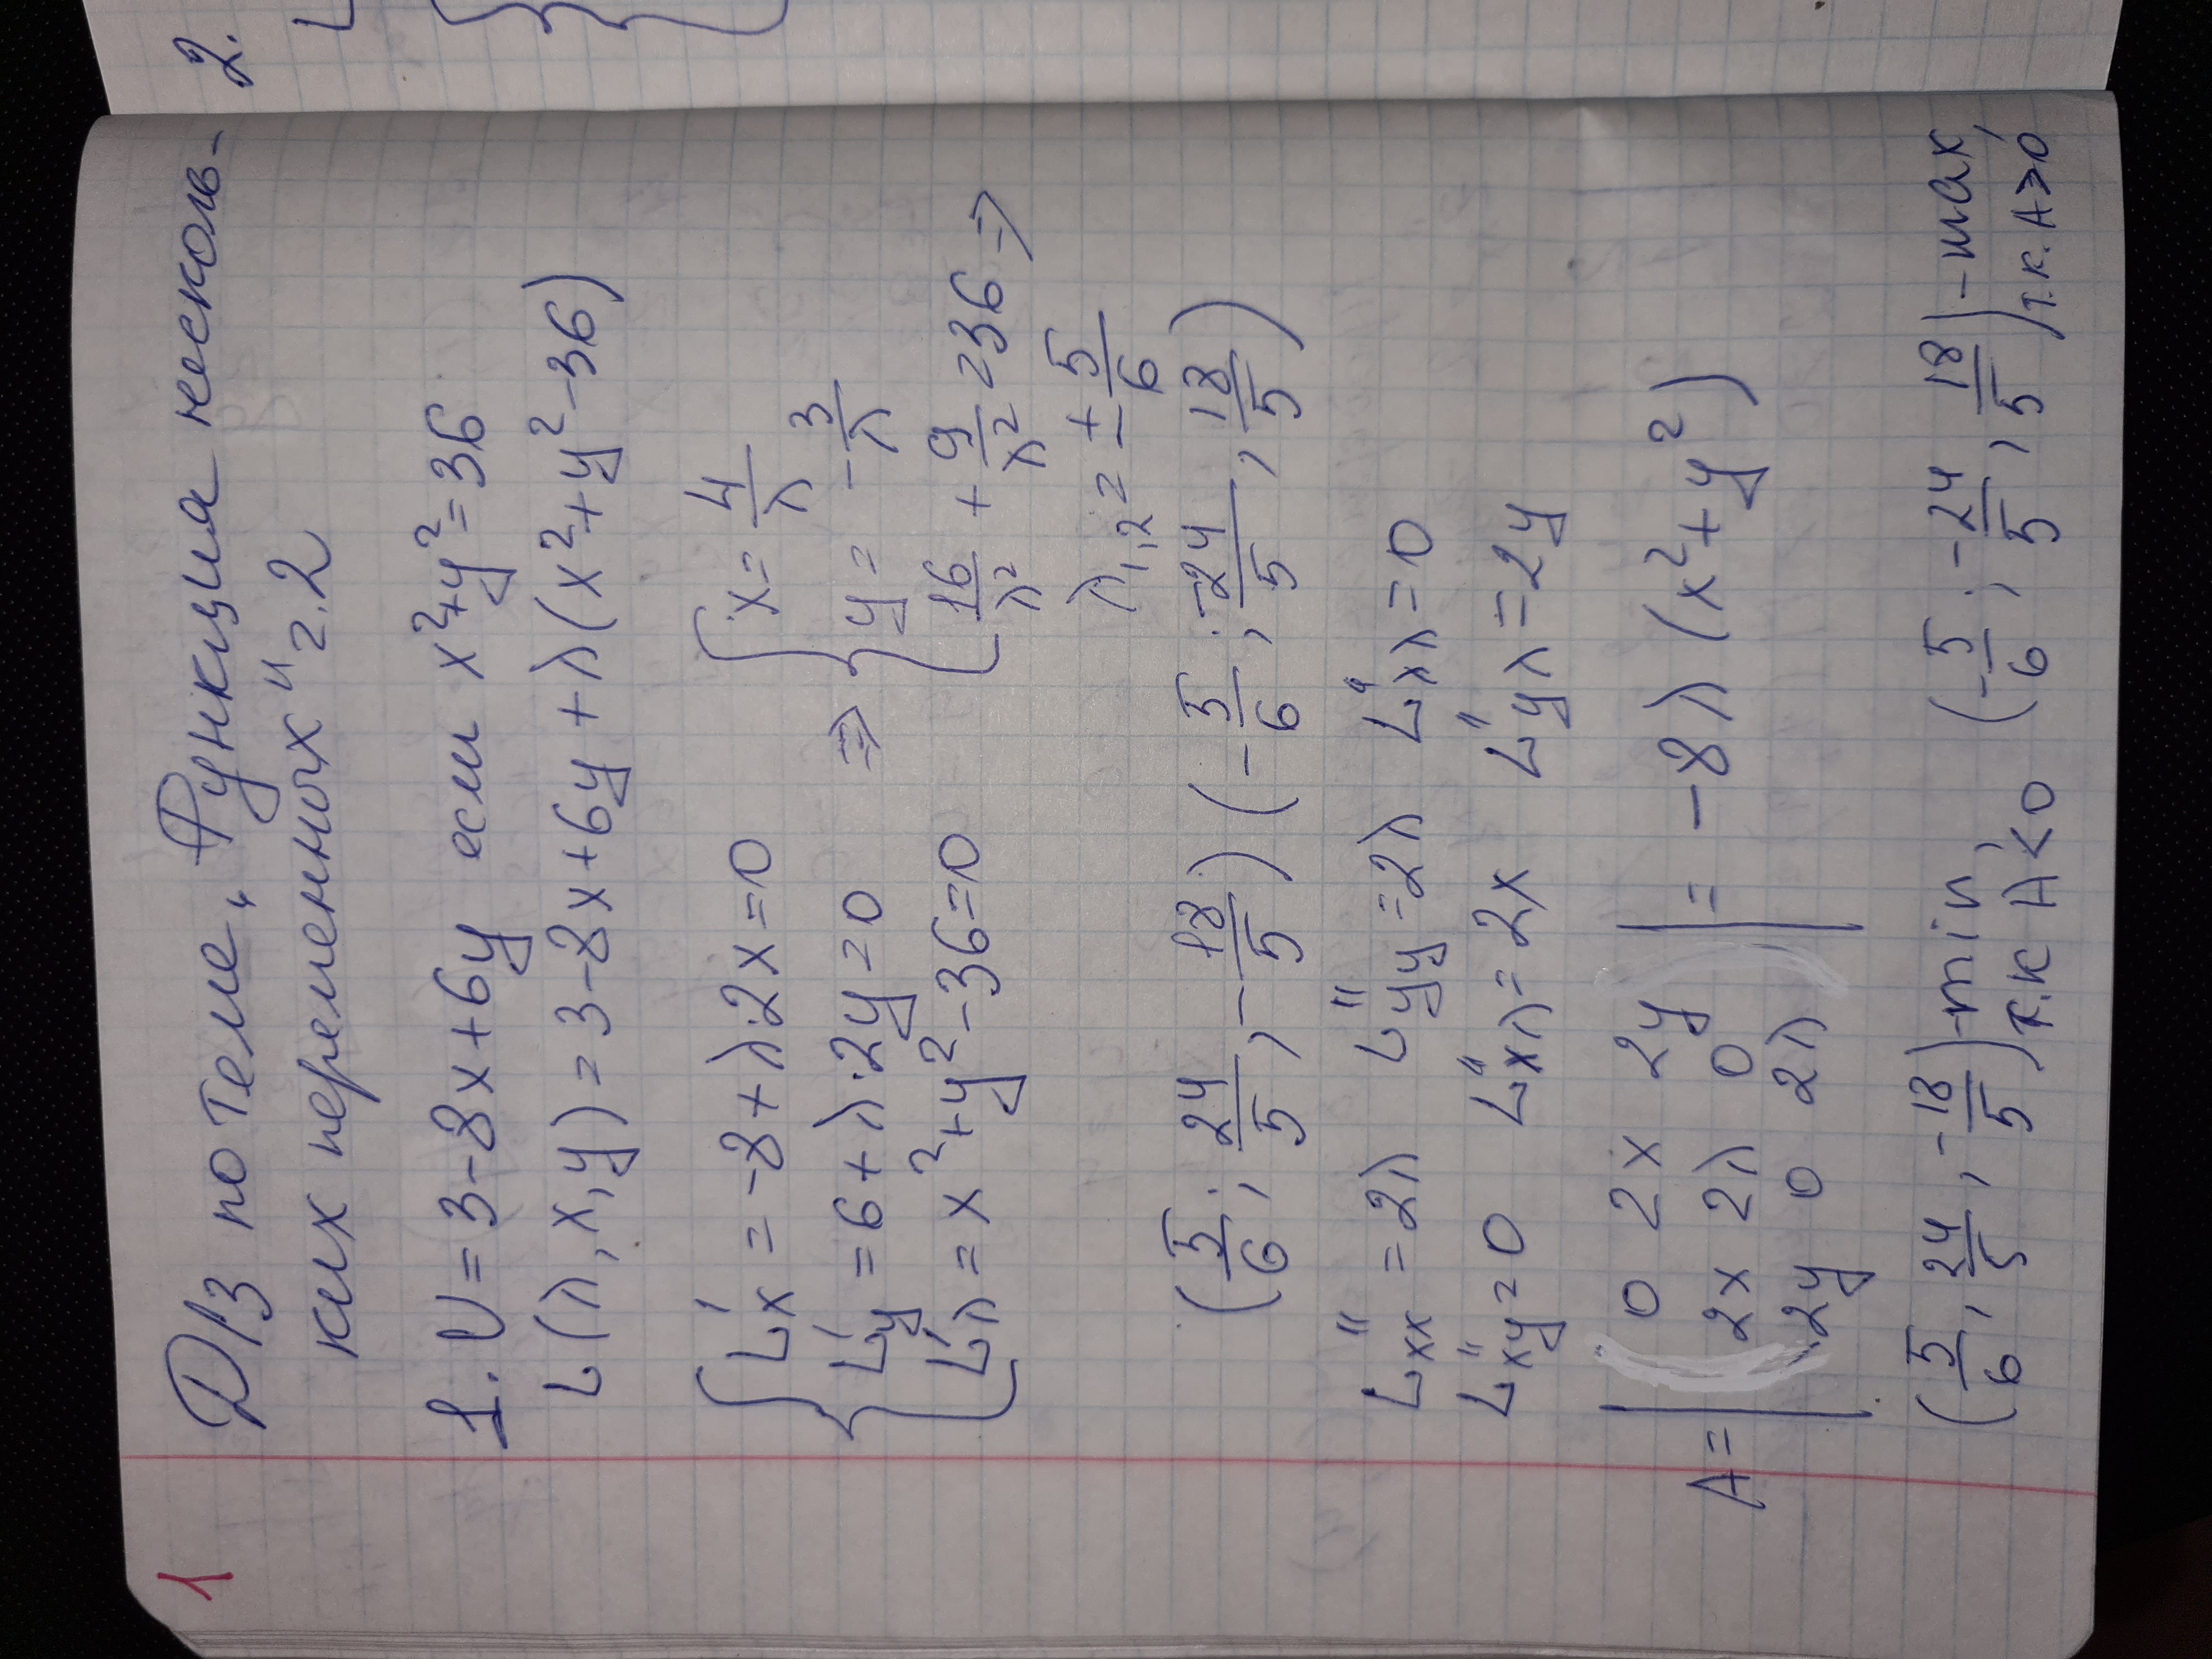 1
Д/З по теме „Функция несколь-
ких переменных" ч.2
1. U = 3-8x+6y если x²+y²=36
L(λ, x, y) = 3-8x+6y+λ(x²+y²-36)
L'x = -8+λ·2x=0 ⇒ x = 4/λ
L'y = 6+λ·2y=0 y = -3/λ
L'λ = x²+y²-36=0 16/λ² + 9/λ² = 36 ⇒
λ1,2 = ± 5/6
(5/6; 24/5, -18/5) (-5/6; -24/5, 18/5)
L''xx = 2λ L''yy = 2λ L''λλ = 0
L''xy = 0 L''xλ = 2x L''yλ = 2y
0 2x 2y
A = | 2x 2λ 0 | = -8λ(x²+y²)
2y 0 2λ
(5/6, 24/5, -18/5) - min, (-5/6; -24/5, 18/5) - max,
т.к A<0 т.к. A>0
2.